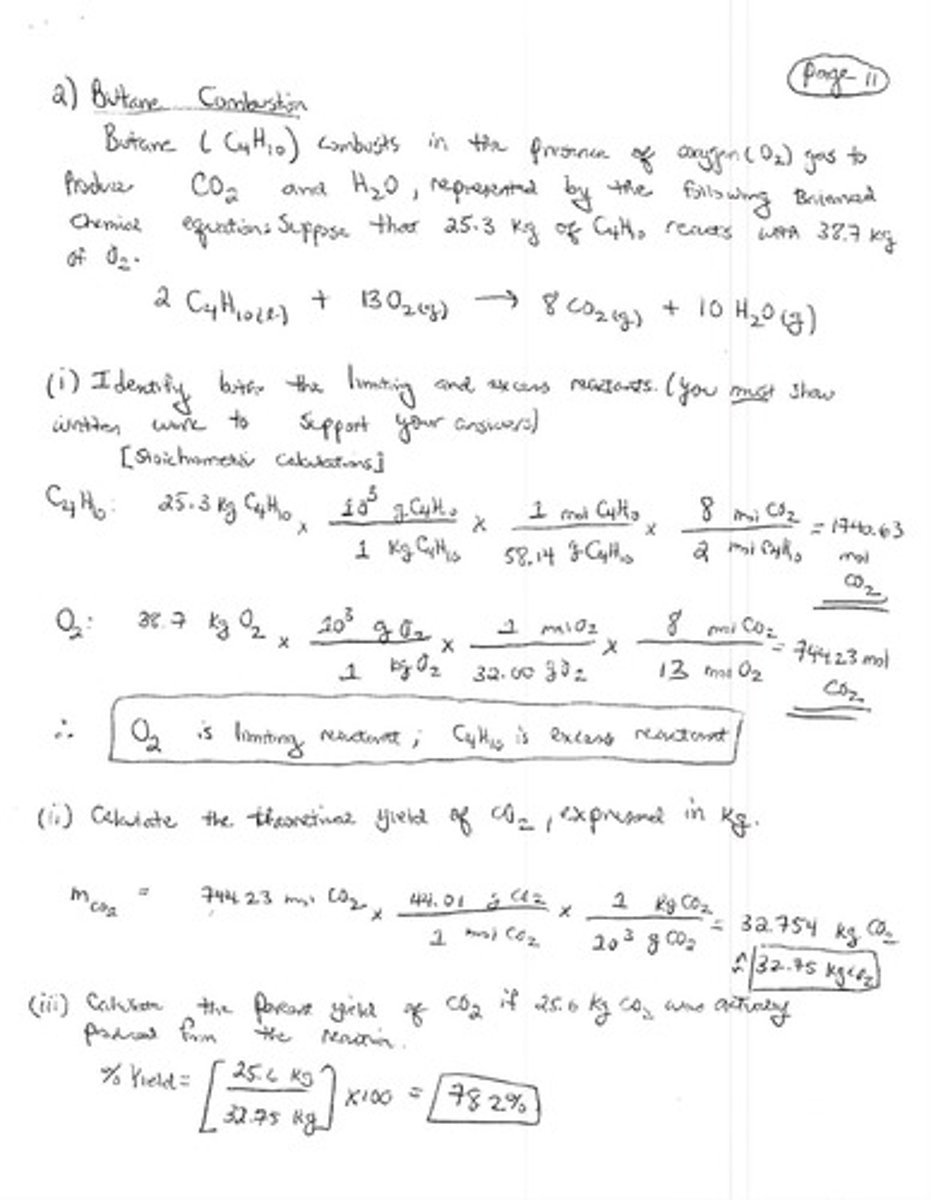 Page 11
2) Butane Combustion
Butane (C4H10) combusts in the presence of oxygen (O2) gas to
Produce CO2 and H2O, represented by the following Balanced
Chemical equation: Suppose that 25.3 kg of C4H10 reacts with 38.7 kg
of O2.
2 C4H10(l) + 13 O2(g) → 8 CO2(g) + 10 H2O(g)
(i) Identify both the limiting and excess reactants. (You must show
written work to support your answers)
[Stoichiometric Calculations]
C4H10: 25.3 kg C4H10 × 10³ g C4H10 / 1 kg C4H10 × 1 mol C4H10 / 58.14 g C4H10 × 8 mol CO2 / 2 mol C4H10 = 1740.63 mol CO2
O2: 38.7 kg O2 × 10³ g O2 / 1 kg O2 × 1 mol O2 / 32.00 g O2 × 8 mol CO2 / 13 mol O2 = 744.23 mol CO2
∴ O2 is limiting reactant; C4H10 is excess reactant
(ii) Calculate the theoretical yield of CO2, expressed in kg.
mCO2 = 744.23 mol CO2 × 44.01 g CO2 / 1 mol CO2 × 1 kg CO2 / 10³ g CO2 = 32.754 kg CO2
32.75 kg CO2
(iii) Calculate the Percent yield of CO2 if 25.6 kg CO2 was actually
produced from the reaction.
% Yield = [25.6 kg / 32.75 kg] ×100 = 78.2%